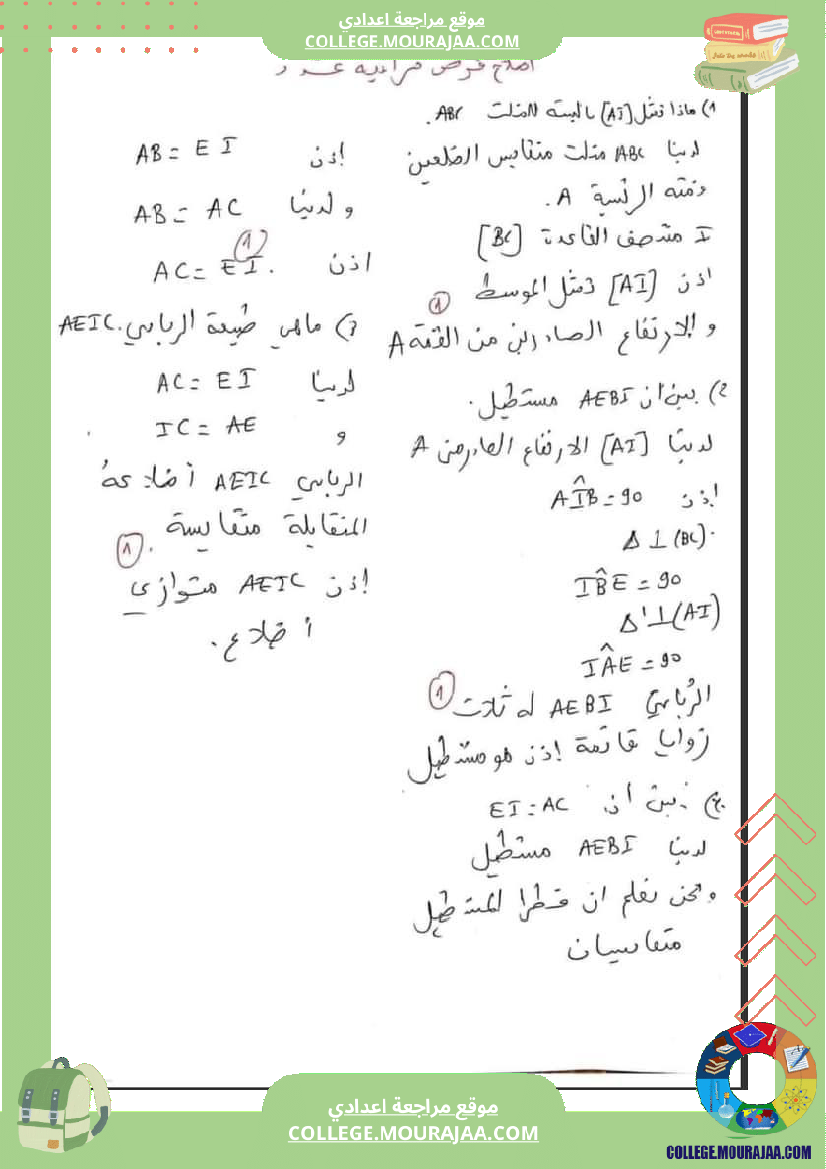 موقع مراجعة اعدادي
COLLEGE.MOURAJAA.COM
اصلاح فرض مراقبة عدد
1) ماذا تمثل [AI] بالنسبة للمثلث ABC.
لدينا ABC مثلث متقايس الضلعين
قمته الرئسية A.
I منتصف القاعدة [BC]
اذن [AI] تمثل الموسط
1
و الارتفاع الصادرين من القمة A
2) بين ان AEBI مستطيل.
لدينا [AI] الارتفاع الصادر من A
إذن AÎB=90
Δ⊥(BC).
IB̂E=90
Δ'⊥(AI)
IÂE=90
الرباعي AEBI له ثلاث
1
زوايا قائمة إذن هو مستطيل
بين أن EI=AC
لدينا AEBI مستطيل
و نحن نعلم ان قطرا المستطيل
متقايسان
إذن AB=EI
و لدينا AB=AC
1
اذن AC=EI.
ماهي طبيعة الرباعي AEIC.
لدينا AC=EI
و IC=AE
الرباعي AEIC أضلاعهُ
المتقابلة متقايسة.
1
إذن AEIC متوازي
أضلاع.
موقع مراجعة اعدادي
COLLEGE.MOURAJAA.COM
COLLEGE.MOURAJAA.COM